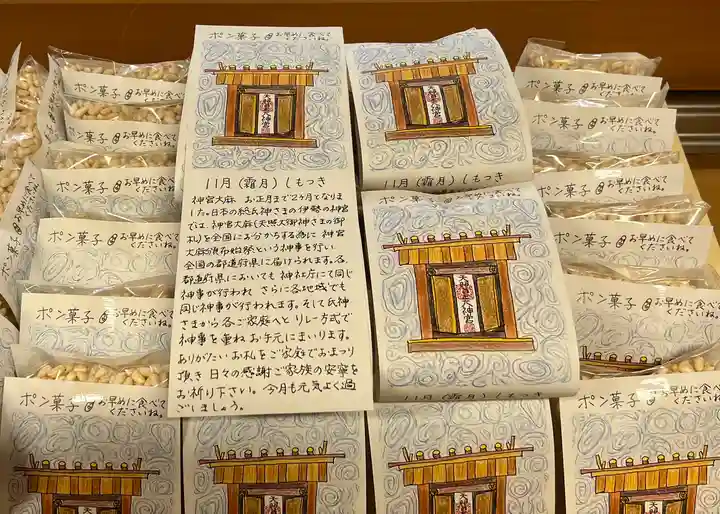 ポン菓子@お早めに食べて
くださいね。
11月(霜月)しもつき
神宮大麻 お正月まで2ヶ月となりま
した。日本の総氏神さまの伊勢の神宮
では、神宮大麻(天照大御神さまの御
札)を全国にお分かちする為に 神宮
大麻頒布始祭という神事を行い
全国の都道府県に届けられます。各
都道府県においても 神社庁にて同じ
神事が行われ さらに各地域でも
同じ神事が行われます。そして氏神
さまから各ご家庭へと リレー方式で
神事を重ねお手元にまいります。
ありがたいお札をご家庭でおまつり
頂き 日々の感謝ご家族の安寧を
お祈り下さい。今月も元気よく過
ごしましょう。
11月(霜月)しもつき
天照皇大神宮
11月(霜月)しもつき
ポン菓子@お早めに食べて
くださいね。
ポン菓子@お早めに食べて
くださいね。
ポン菓子@お早めに食べて
くださいね。
ポン菓子@お早めに食べて
くださいね。
ポン菓子@お早めに食べて
くださいね。
ポン菓子@お早めに食べて
くださいね。
ポン菓子@お早めに食べて
くださいね。
ポン菓子@お早めに食べて
くださいね。
ポン菓子@お早めに食べて
くださいね。